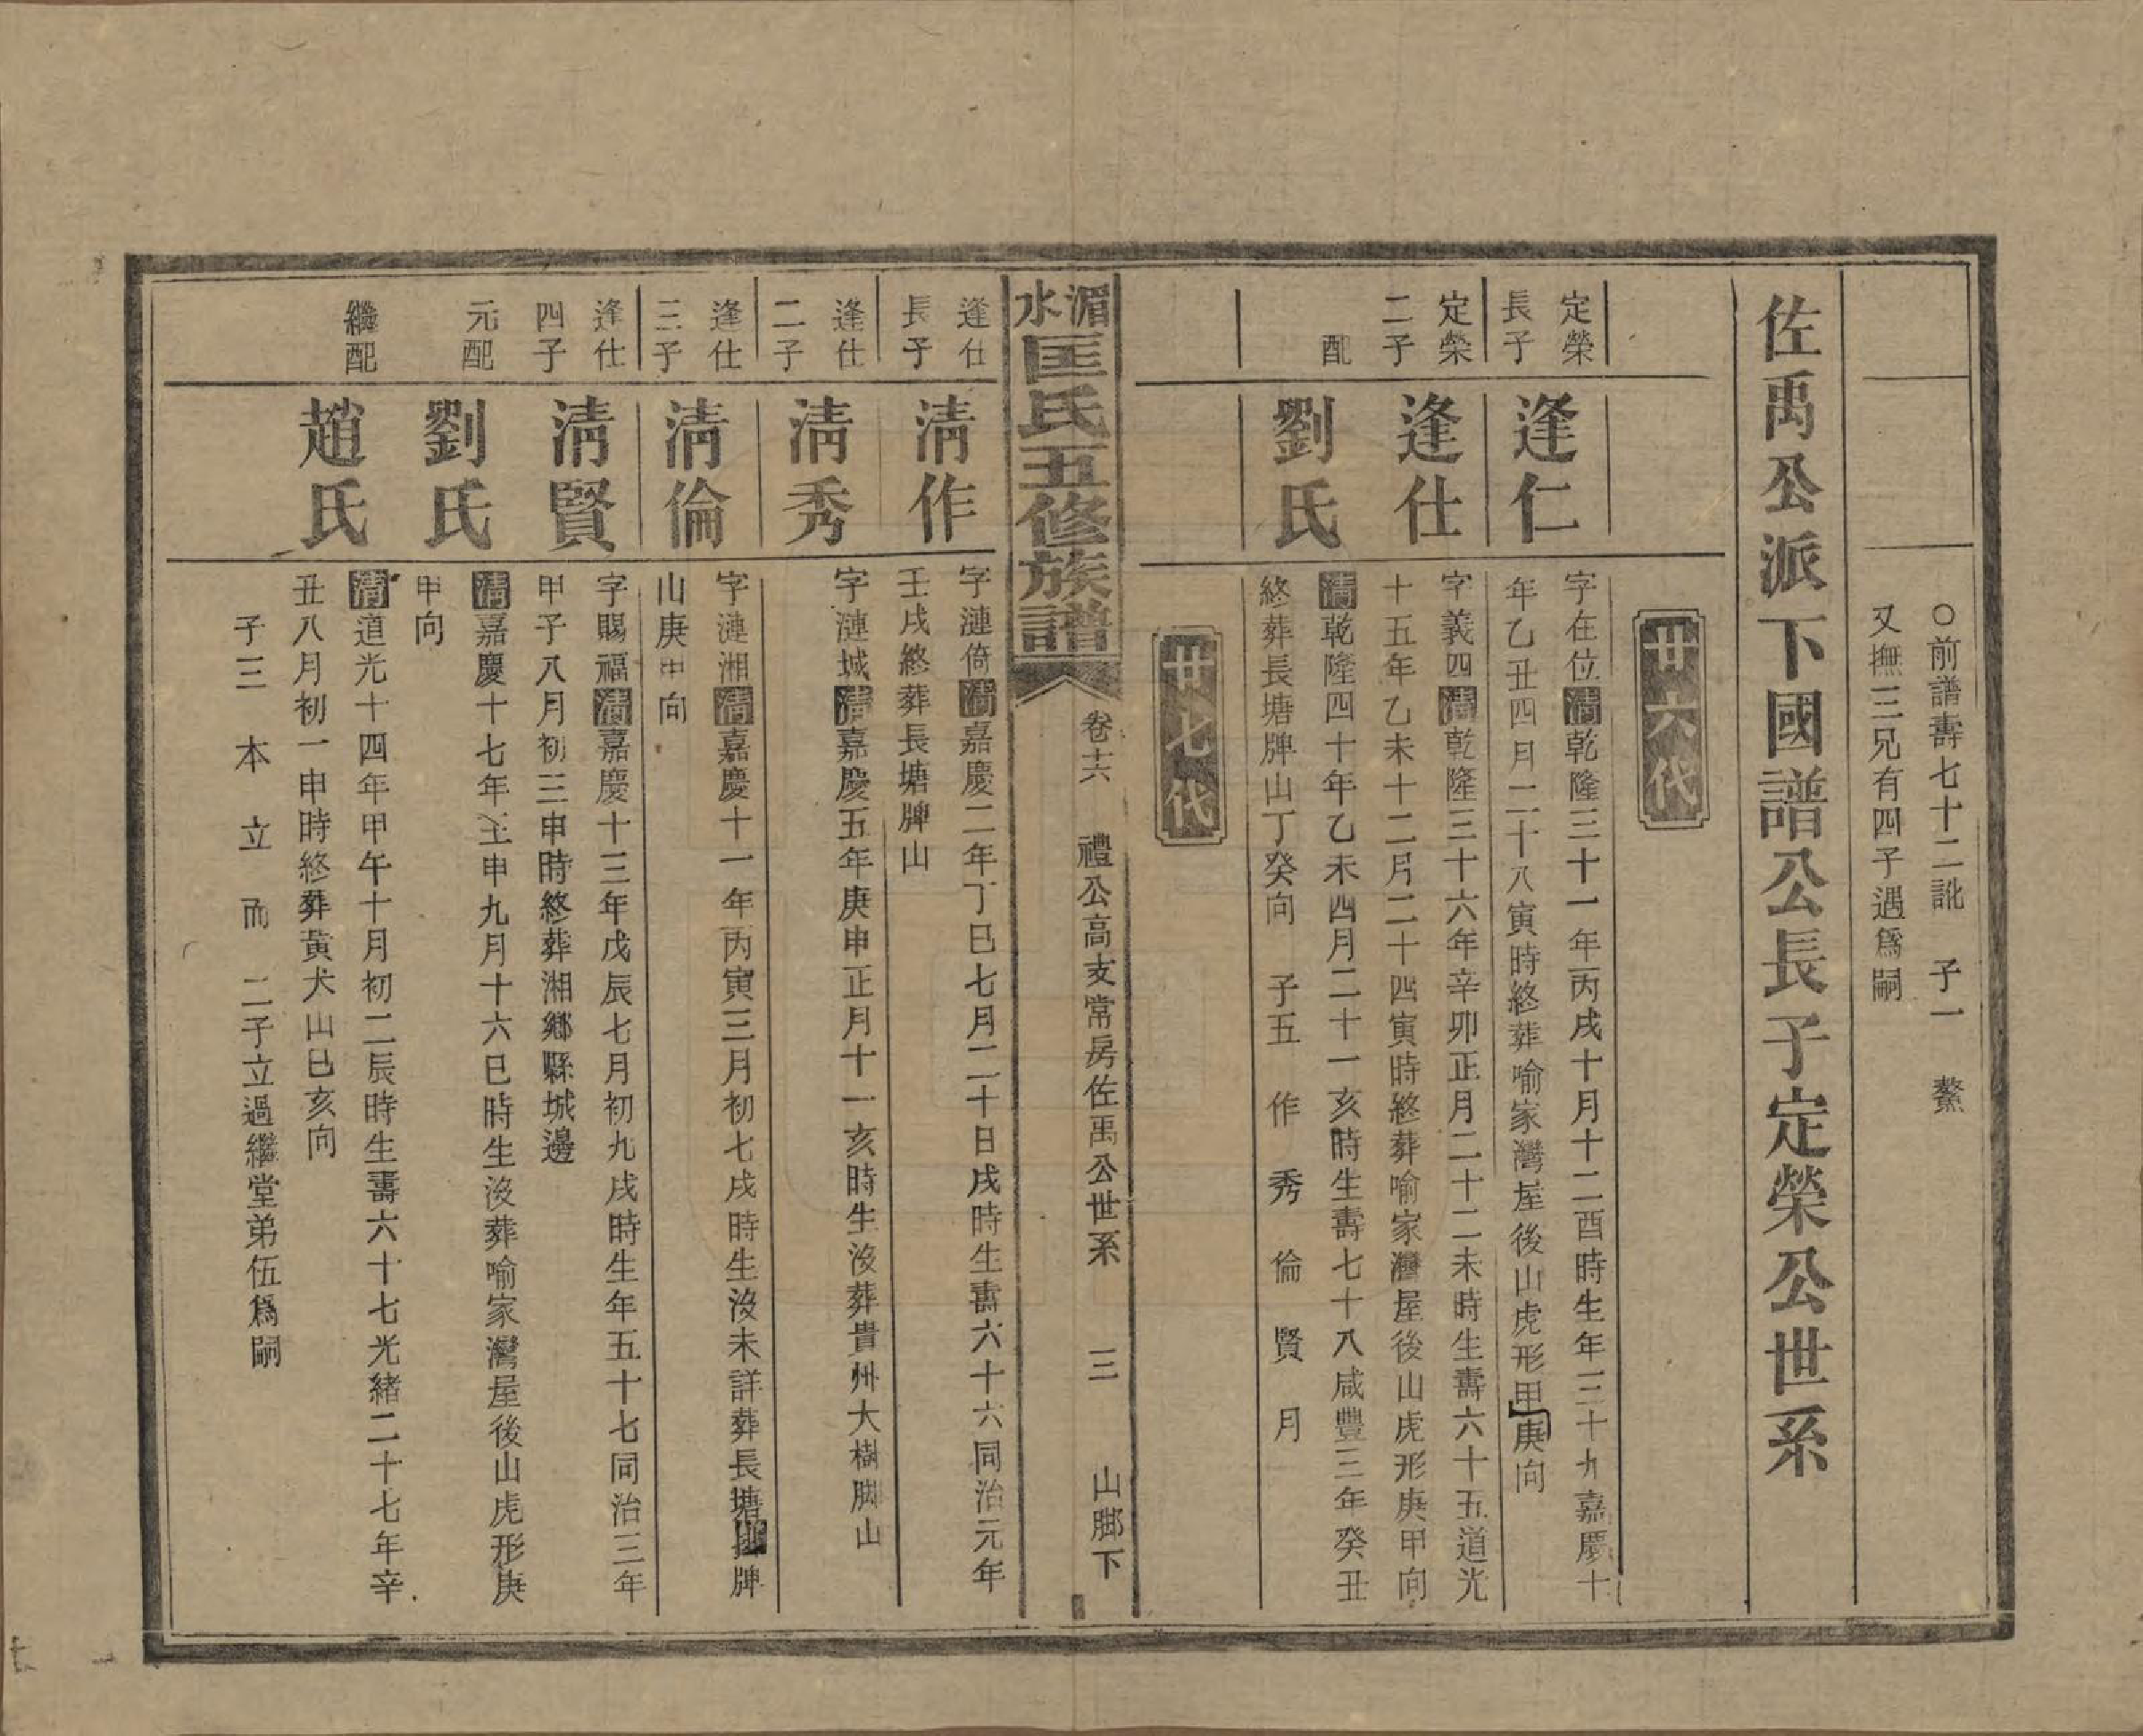 ○前譜壽七十二訛　子一　鰲
又撫三兄有四子遇爲嗣
佐禹公派下國譜公長子定榮公世系
廿六代
定榮
長子
逢仁
字在位清乾隆三十一年丙戌十月十二酉時生年三十九嘉慶十
年乙丑四月二十八寅時終葬喻家灣屋後山虎形甲庚向
定榮
二子
逢仕
字義四清乾隆三十六年辛卯正月二十二未時生壽六十五道光
十五年乙未十二月二十四寅時終葬喻家灣屋後山虎形庚甲向
配
劉氏
清乾隆四十年乙未四月二十一亥時生壽七十八咸豐三年癸丑
終葬長塘牌山丁癸向　子五　作　秀　倫　賢　月
廿七代
湄水匡氏五修族譜
卷十六　禮公高支常房佐禹公世系　三　山脚下
逢仕
長子
清作
字漣倚清嘉慶二年丁巳七月二十日戌時生壽六十六同治元年
壬戌終葬長塘牌山
逢仕
二子
清秀
字漣城清嘉慶五年庚申正月十一亥時生沒葬貴州大樹脚山
逢仕
三子
清倫
字漣湘清嘉慶十一年丙寅三月初七戌時生沒未詳葬長塘牌
山庚甲向
逢仕
四子
清賢
字賜福清嘉慶十三年戊辰七月初九戌時生年五十七同治三年
甲子八月初三申時終葬湘鄉縣城邊
元配
劉氏
清嘉慶十七年壬申九月十六巳時生沒葬喻家灣屋後山虎形庚
甲向
繼配
趙氏
清道光十四年甲午十月初二辰時生壽六十七光緒二十七年辛
丑八月初一申時終葬黃犬山巳亥向
子三　本　立　而　二子立過繼堂弟伍爲嗣